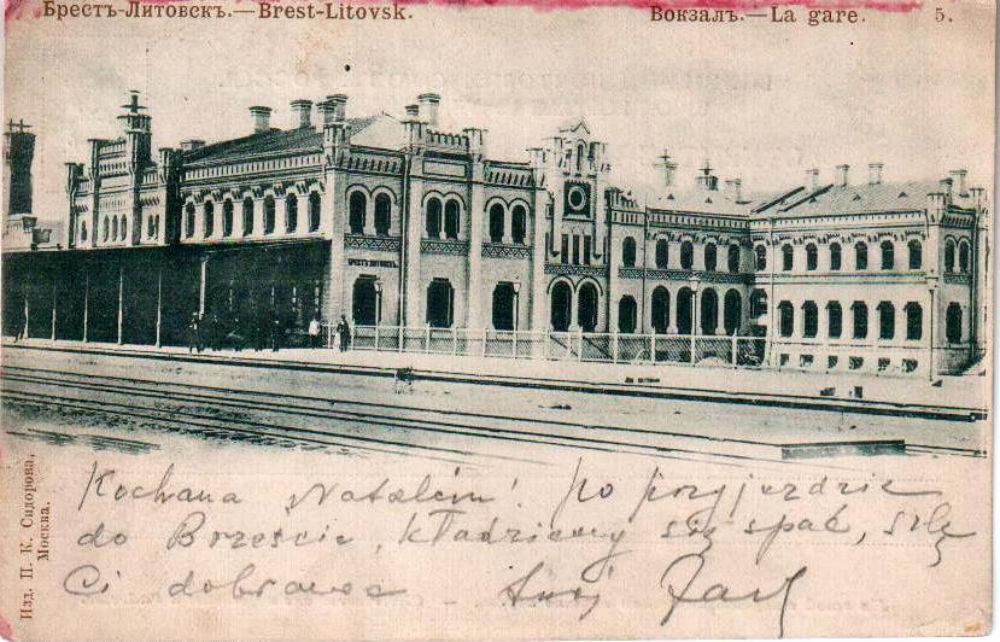 Брестъ-Литовскъ.—Brest-Litovsk. Вокзалъ.—La gare. 5.
БРЕСТЪ-ЛИТОВСКЪ.
Kochana Natalciu! po przyjezdzie
do Brześcia, kładziemy się spać, ślę
Ci dobranoc Twój
Изд. П. К. Сидорова,
Москва.